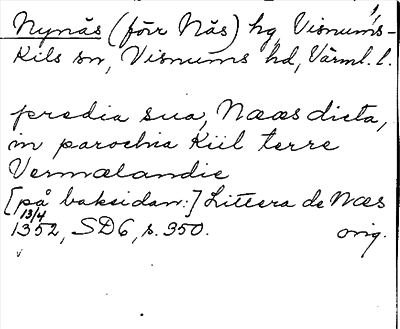 Nynäs (förr Näs) hg Visnums-
Kils sn, Visnums hd, Värml. l.
predia sua, Næs dicta,
in parochia Kiil terre
Vermælandie
[på baksidan:] Littera de Næs
13/4
1352, SD6, s. 350. orig.